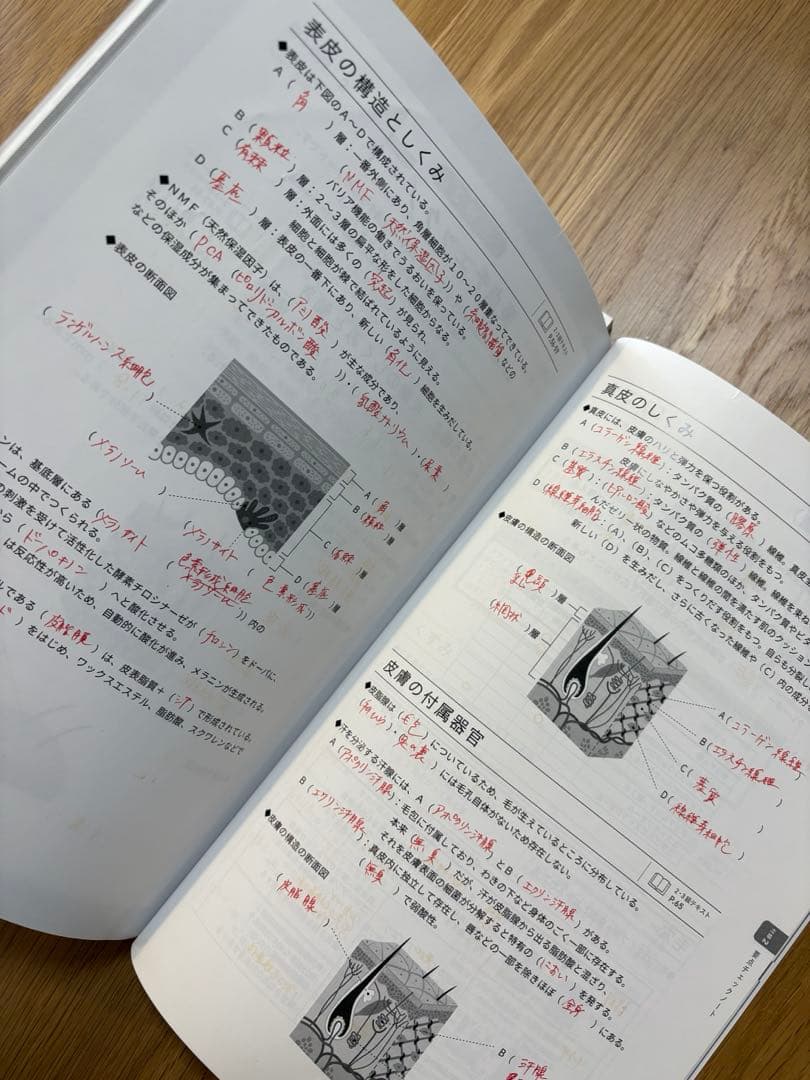 表皮の構造としくみ
◆表皮は下図のA～Dで構成されている。
2・3級テキスト
A（角）層：一番外側にあり、角層細胞が10～20層重なってできている。
（NMF（天然保湿因子））や（細胞間脂質）などの
バリア機能の働きでうるおいを保っている。
B（顆粒）層：2～3層の扁平な形をした細胞からなる。
C（有棘）層：外面には多くの（突起）が見られ、
細胞と細胞が棘で結ばれているように見える。
D（基底）層：表皮の一番下にあり、新しい（角化）細胞を生みだしている。
◆NMF（天然保湿因子）は、（アミノ酸）が主な成分であり、
そのほか（PCA（ピロリドンカルボン酸））・（乳酸ナトリウム）・（尿素）
などの保湿成分が集まってできたものである。
◆表皮の断面図
（ランゲルハンス細胞）
（メラノソーム）
（メラノサイト
A（角）層
B（顆粒）層
C（有棘）層
D（基底）層
ンは、基底層にある（メラノサイト（色素形成細胞））内の
ームの中でつくられる。
の刺激を受けて活性化した酵素チロシナーゼが（チロシン）をドーパに、
から（ドーパキノン）へと酸化させる。
は反応性が高いため、自動的に酸化が進み、メラニンが生成される。
ルである（皮脂膜）は、皮表脂質＋（汗）で形成されている。
ド）をはじめ、ワックスエステル、脂肪酸、スクワレンなどで
真皮のしくみ
◆真皮には、皮膚のハリと弾力を保つ役割がある。
A（コラーゲン線維）：タンパク質の（膠原）線維。真皮
皮膚にしなやかさや弾力を与える役割をもつ。
B（エラスチン線維）：タンパク質の（弾性）線維。線維を
C（基質）：（ヒアルロン酸）などのムコ多糖類のほか、タンパク質や
んだゼリー状の物質。線維と線維の間を満たす肌のクッショ
D（線維芽細胞）：（A）、（B）、（C）をつくりだす役割をもつ。自らも分裂し
新しい（D）を生みだし、さらに古くなった線維や（C）内の成分
◆皮膚の構造の断面図
（乳頭）層
（網状）層
A（コラーゲン線維）
B（エラスチン線維）
C（基質）
D（線維芽細胞）
皮膚の付属器官
2・3級テキスト
P.65
◆皮脂腺は（毛包）についているため、毛が生えているところに分布している。
（手のひら）・（足の裏）には毛孔自体がないため存在しない。
◆汗を分泌する汗腺には、A（アポクリン汗腺）とB（エクリン汗腺）がある。
A（アポクリン汗腺）：毛包に付属しており、わきの下など身体のごく一部に存在する。
本来（無臭）だが、汗が皮脂腺から出る脂肪酸と混ざり、
それを皮膚表面の細菌が分解すると特有の（におい）を発する。
B（エクリン汗腺）：真皮内に独立して存在し、唇などの一部を除きほぼ（全身）にある。
（無臭）で弱酸性。
◆皮膚の構造の断面図
（皮脂腺）
B（汗腺
要点チェックノート